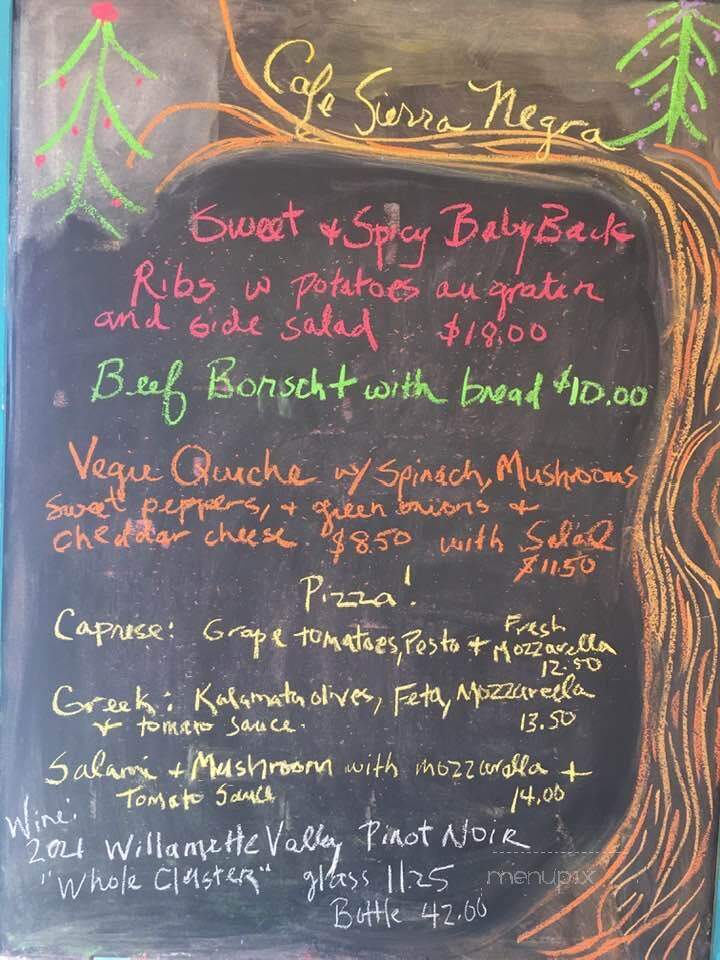 Cafe Sierra Negra
Sweet & Spicy Baby Back
Ribs w potatoes au gratin
and side salad $18.00
Beef Borscht with bread $10.00
Vegie Quiche w/ Spinach, Mushrooms
Sweet peppers, + green onions +
cheddar cheese $8.50 with Salad
$11.50
Pizza!
Caprese: Grape tomatoes, Pesto + Fresh
Mozzarella
12.50
Greek: Kalamata olives, Feta, Mozzarella
+ tomato sauce. 13.50
Salami + Mushroom with mozzarella +
Tomato Sauce 14.00
Wine:
2021 Willamette Valley Pinot Noir
"Whole Cluster" glass 11.25
Bottle 42.00
menupix